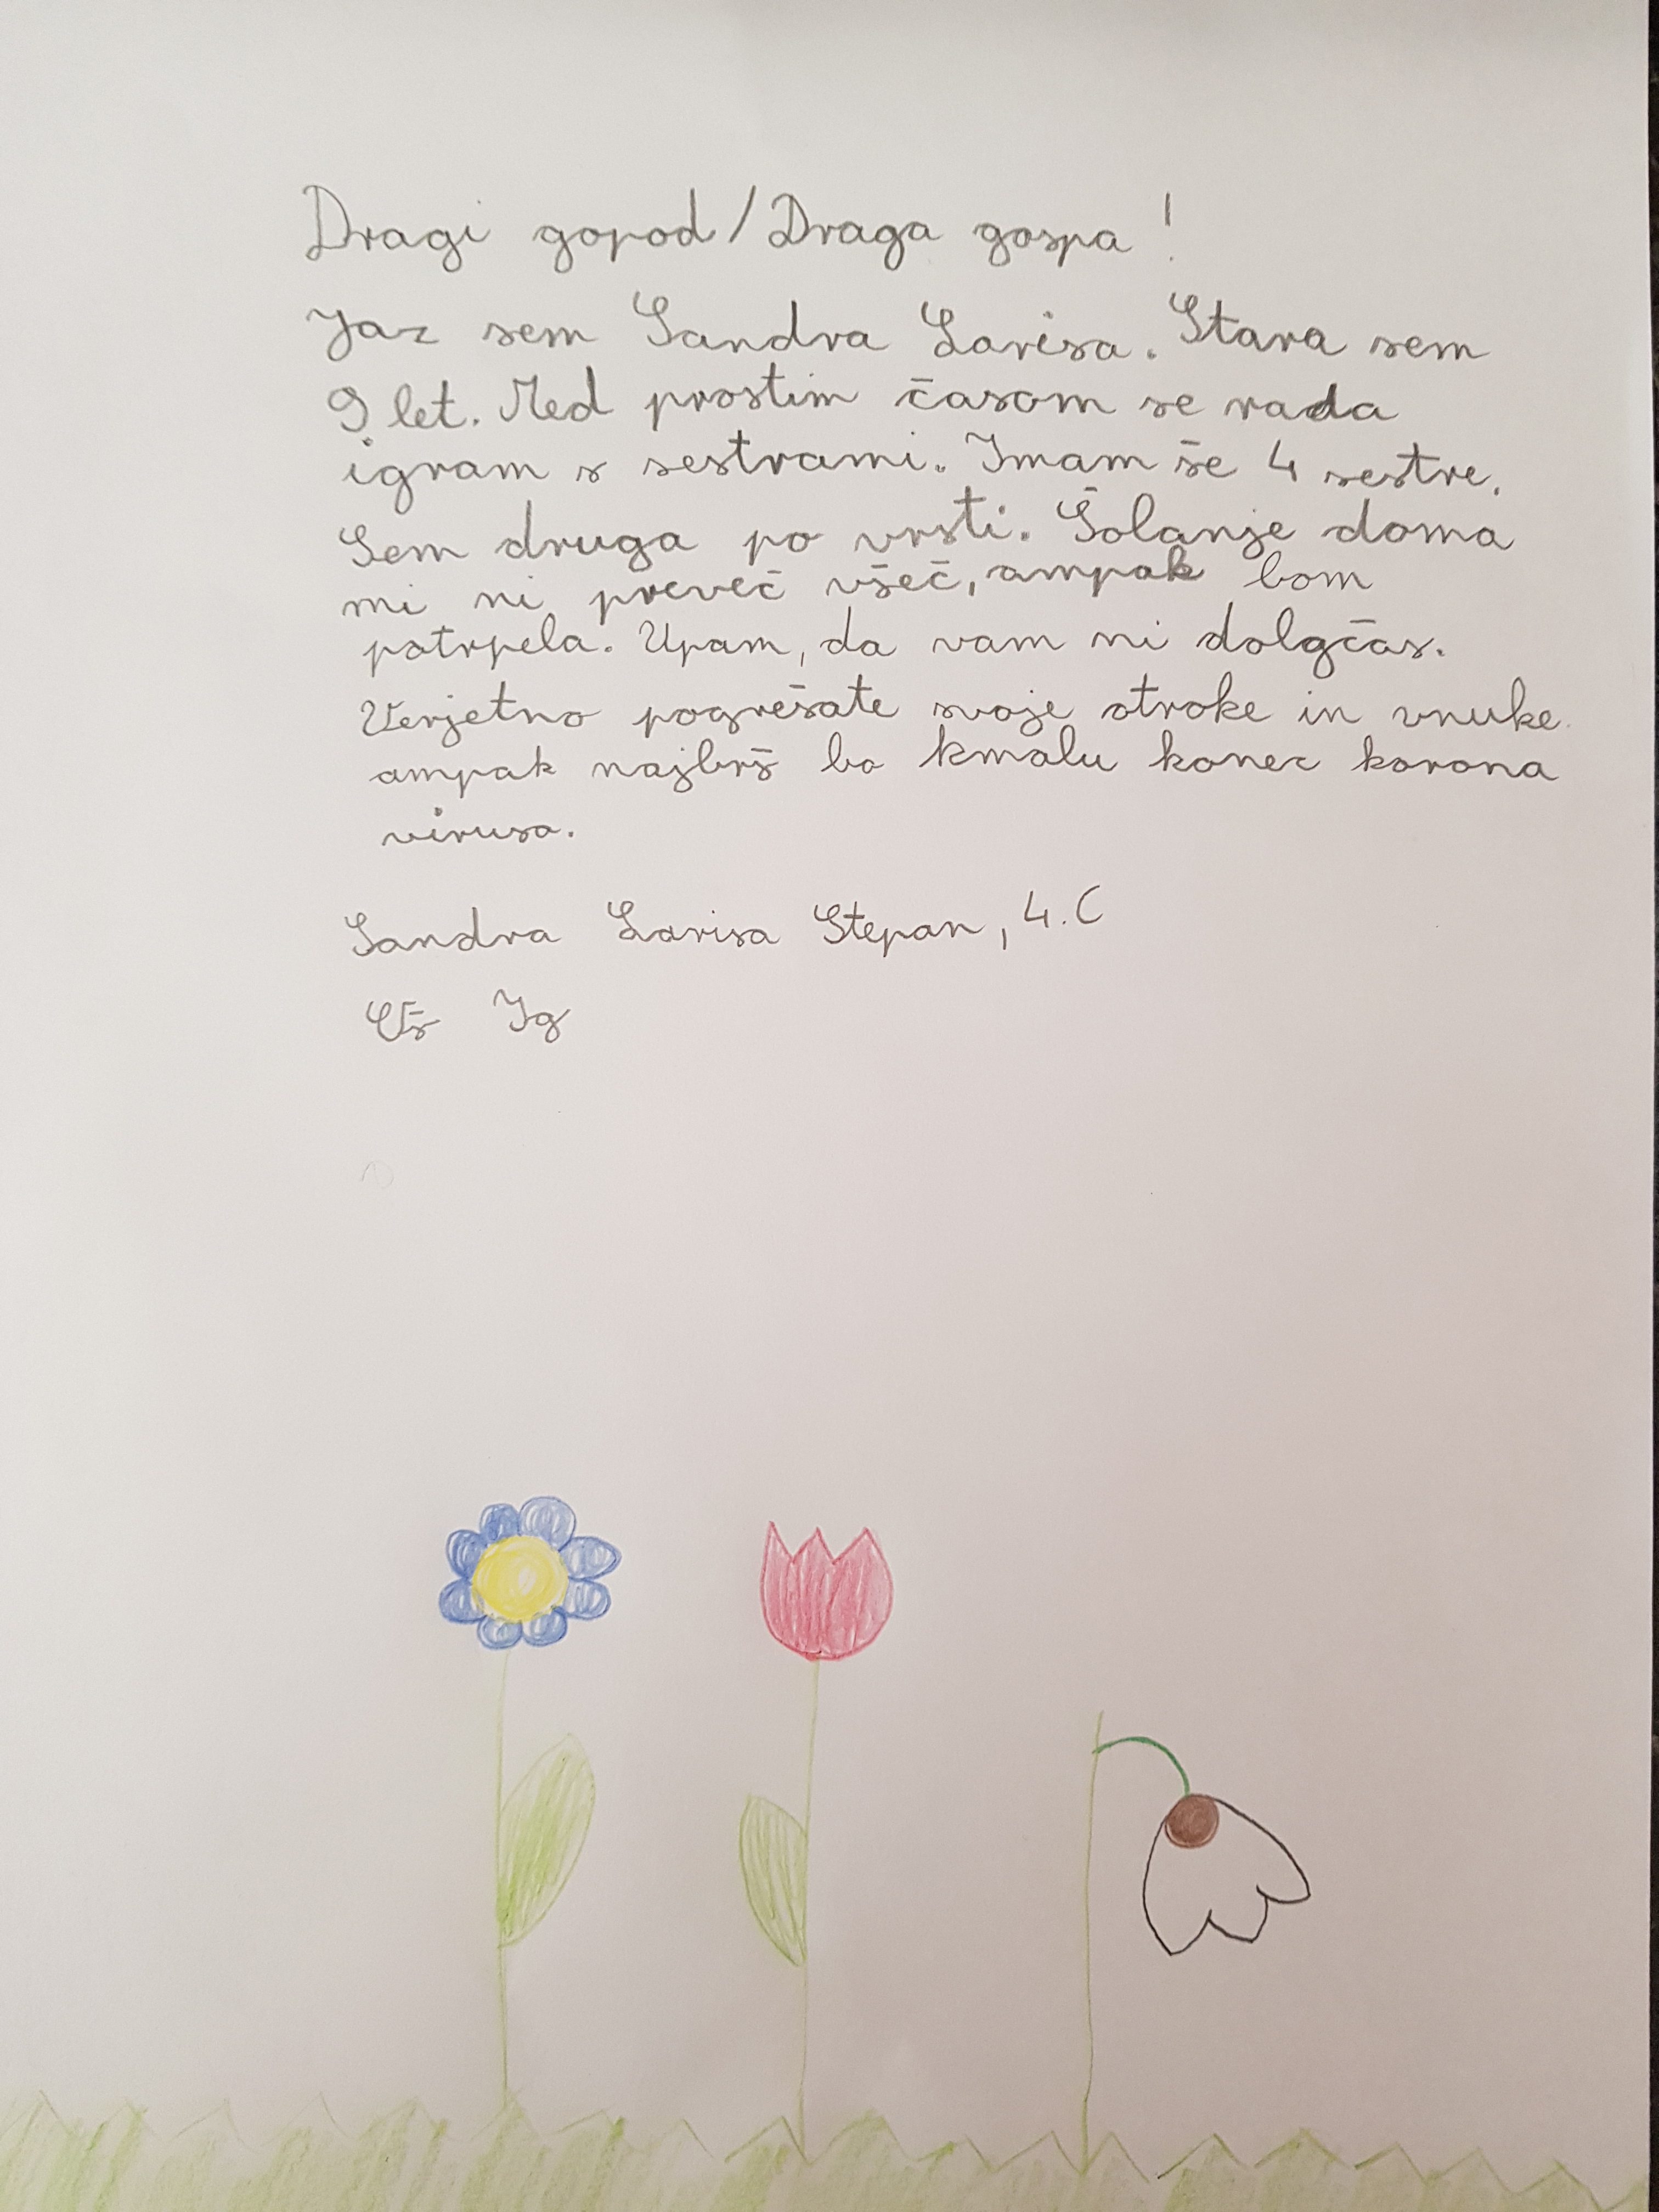 Dragi gopod/Draga gospa!
Jaz sem Sandra Larisa. Stara sem
9 let. Med prostim časom se rada
igram s sestrami. Imam še 4 sestre.
Sem druga po vrsti. Šolanje doma
mi ni preveč všeč, ampak bom
potrpela. Upam, da vam ni dolgčas.
Verjetno pogrešate svoje otroke in vnuke.
ampak najbrš bo kmalu konec korona
virusa.
Sandra Larisa Stepan, 4. C
OŠ Ig